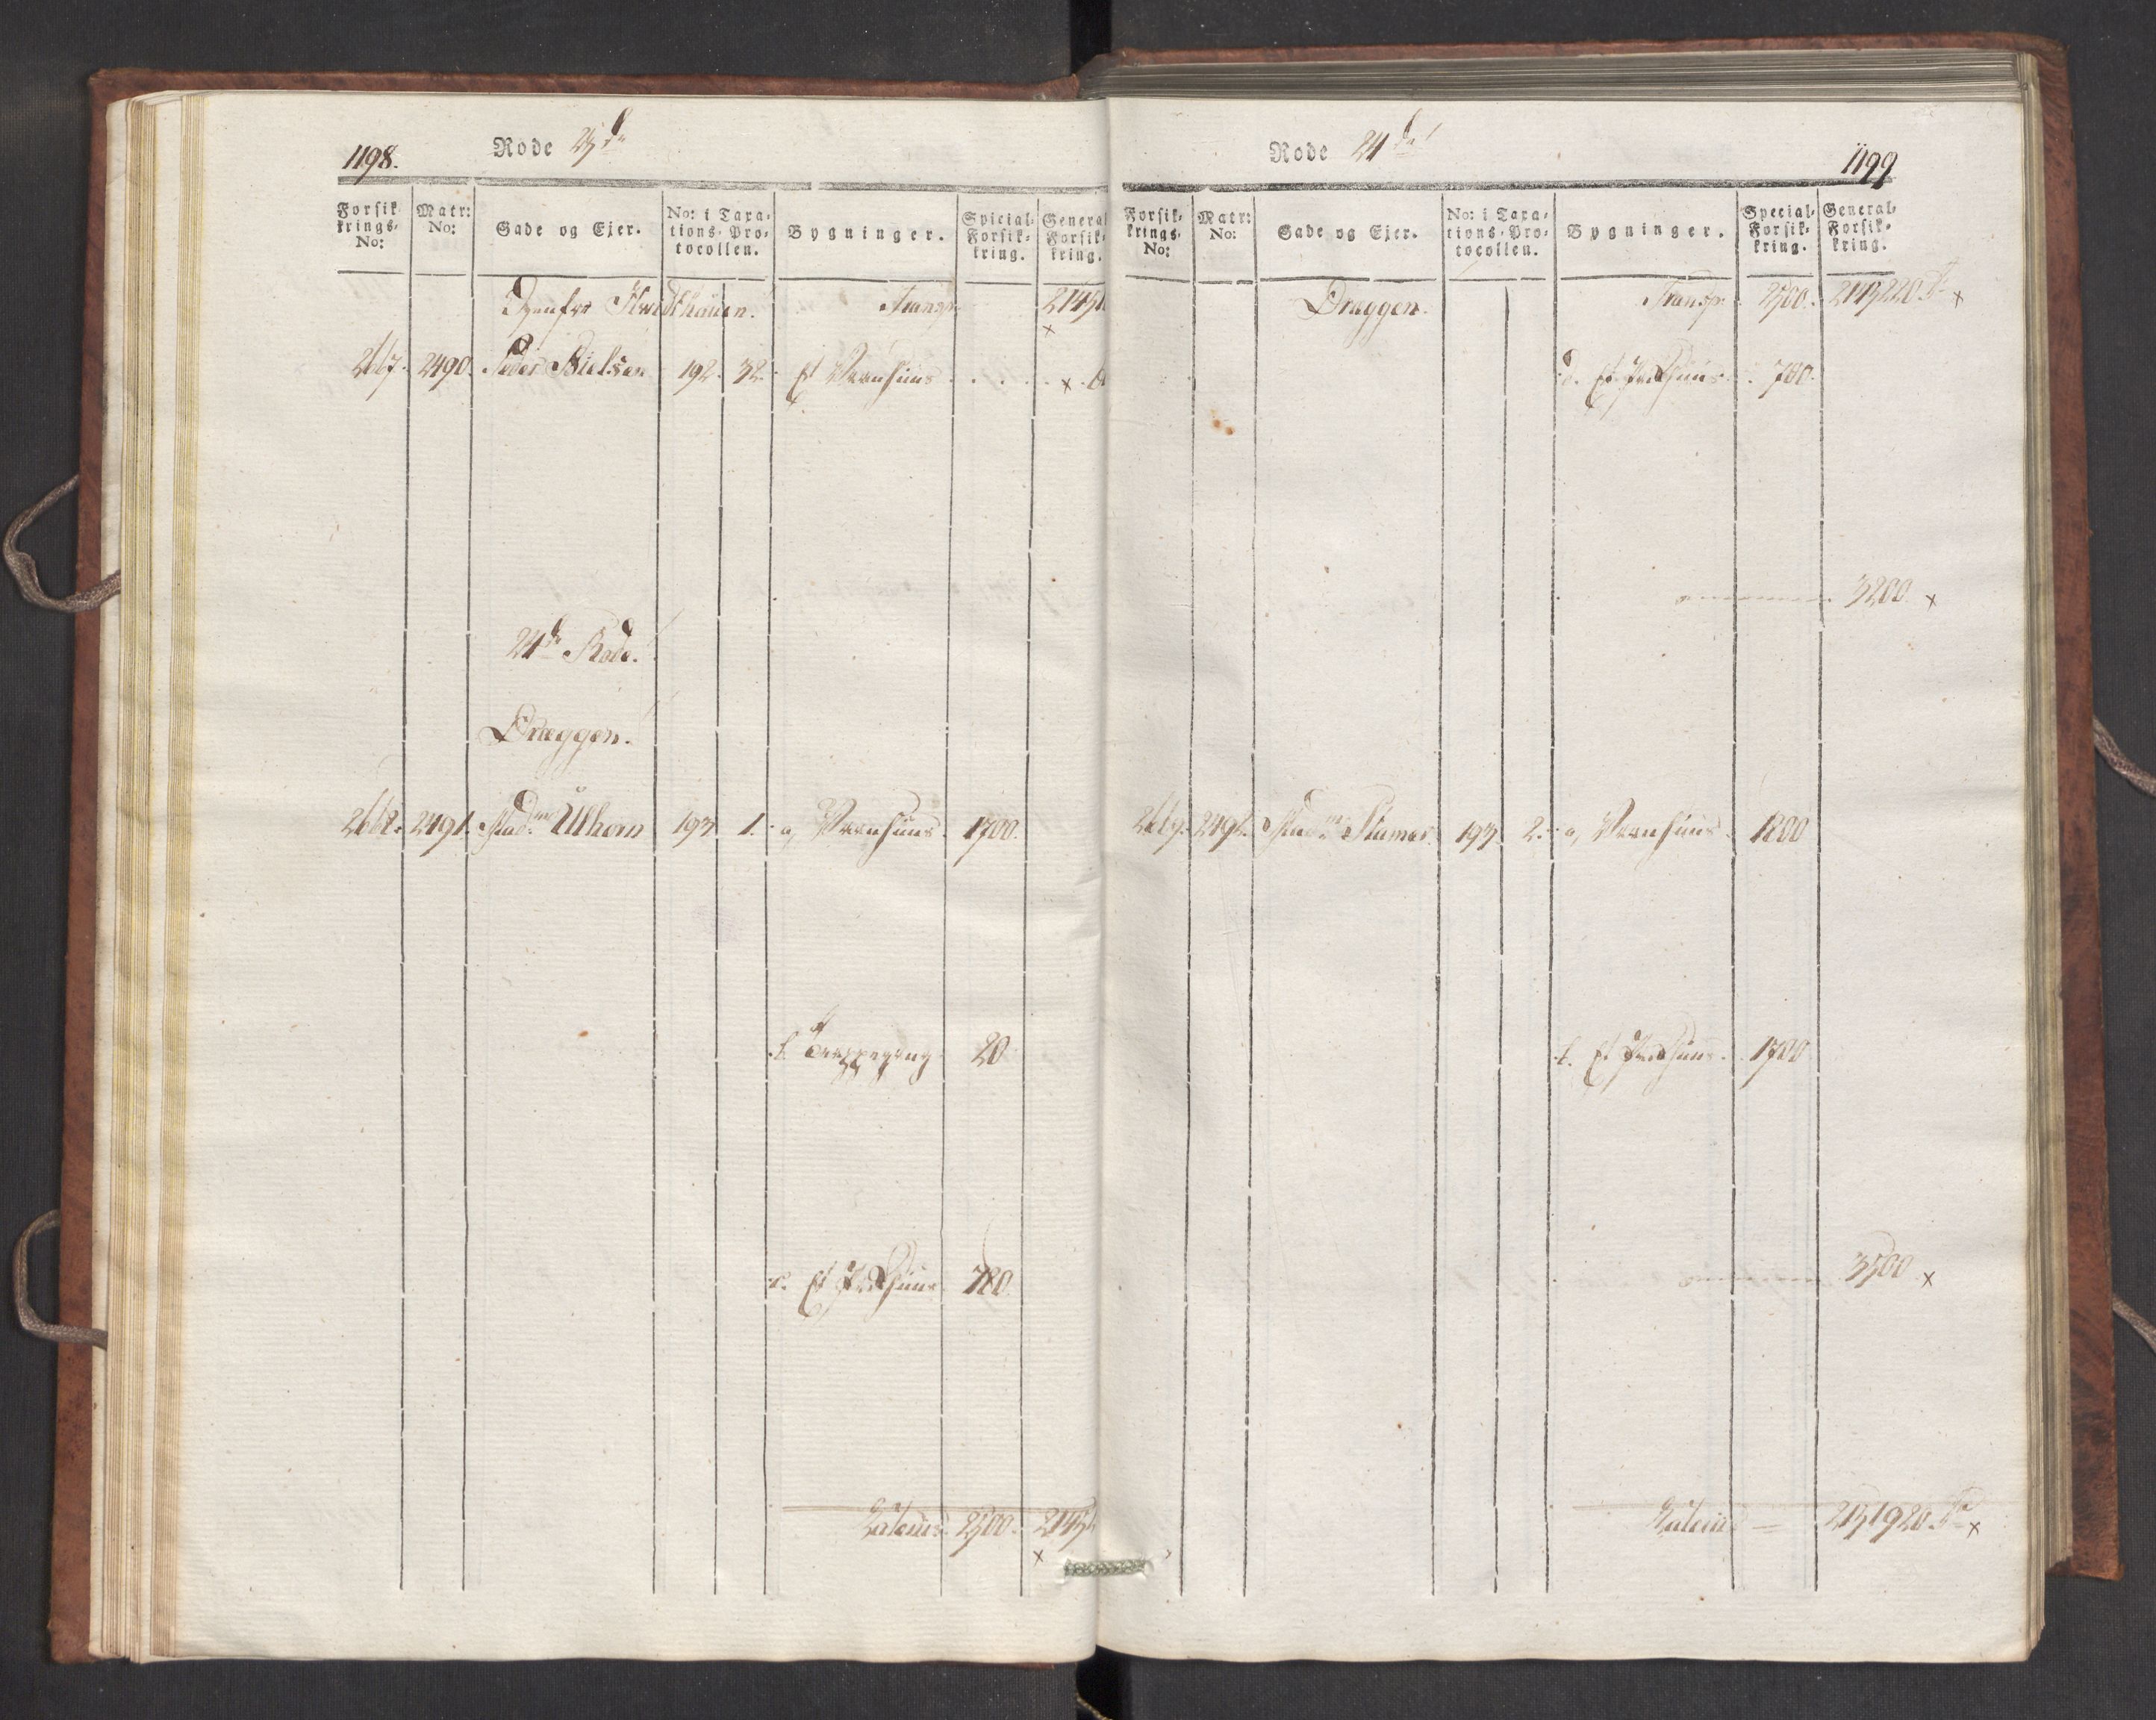 1198.
Rode 23de
Forsik-
krings-
No:
Matr:
No:
Gade og Ejer.
No: i Taxa-
tions-Pro-
tocollen.
Bygninger.
Spicial-
Forsik-
kring.
General
Forsik-
kring.
Transp.
2667. 2490. Peder Nielsen 192. 32. Et Vaanhuus
24de Rode.
Dræggen.
2668. 2491. Mad.me Ulhorn 193 1. a, Vaanhuus. 1700.
b. Trappegang 20
c. Et Pakhuus 780.
Lateris 2500.
Rode 24de
1199
Forsik-
krings-
No:
Matr:
No:
Gade og Ejer.
No: i Taxa-
tions-Pro-
tocollen.
Bygninger.
Special-
Forsik-
kring.
General-
Forsik-
kring.
Dræggen. Transp. 2500. 2145220 x
d. Et Pakhuus 700.
3200. x
2669. 2492. Mad.me 193. 2. a, Vaanhuus 1800
b. Et Pakhuus 1700
3500 x
Lateris 2151920 x